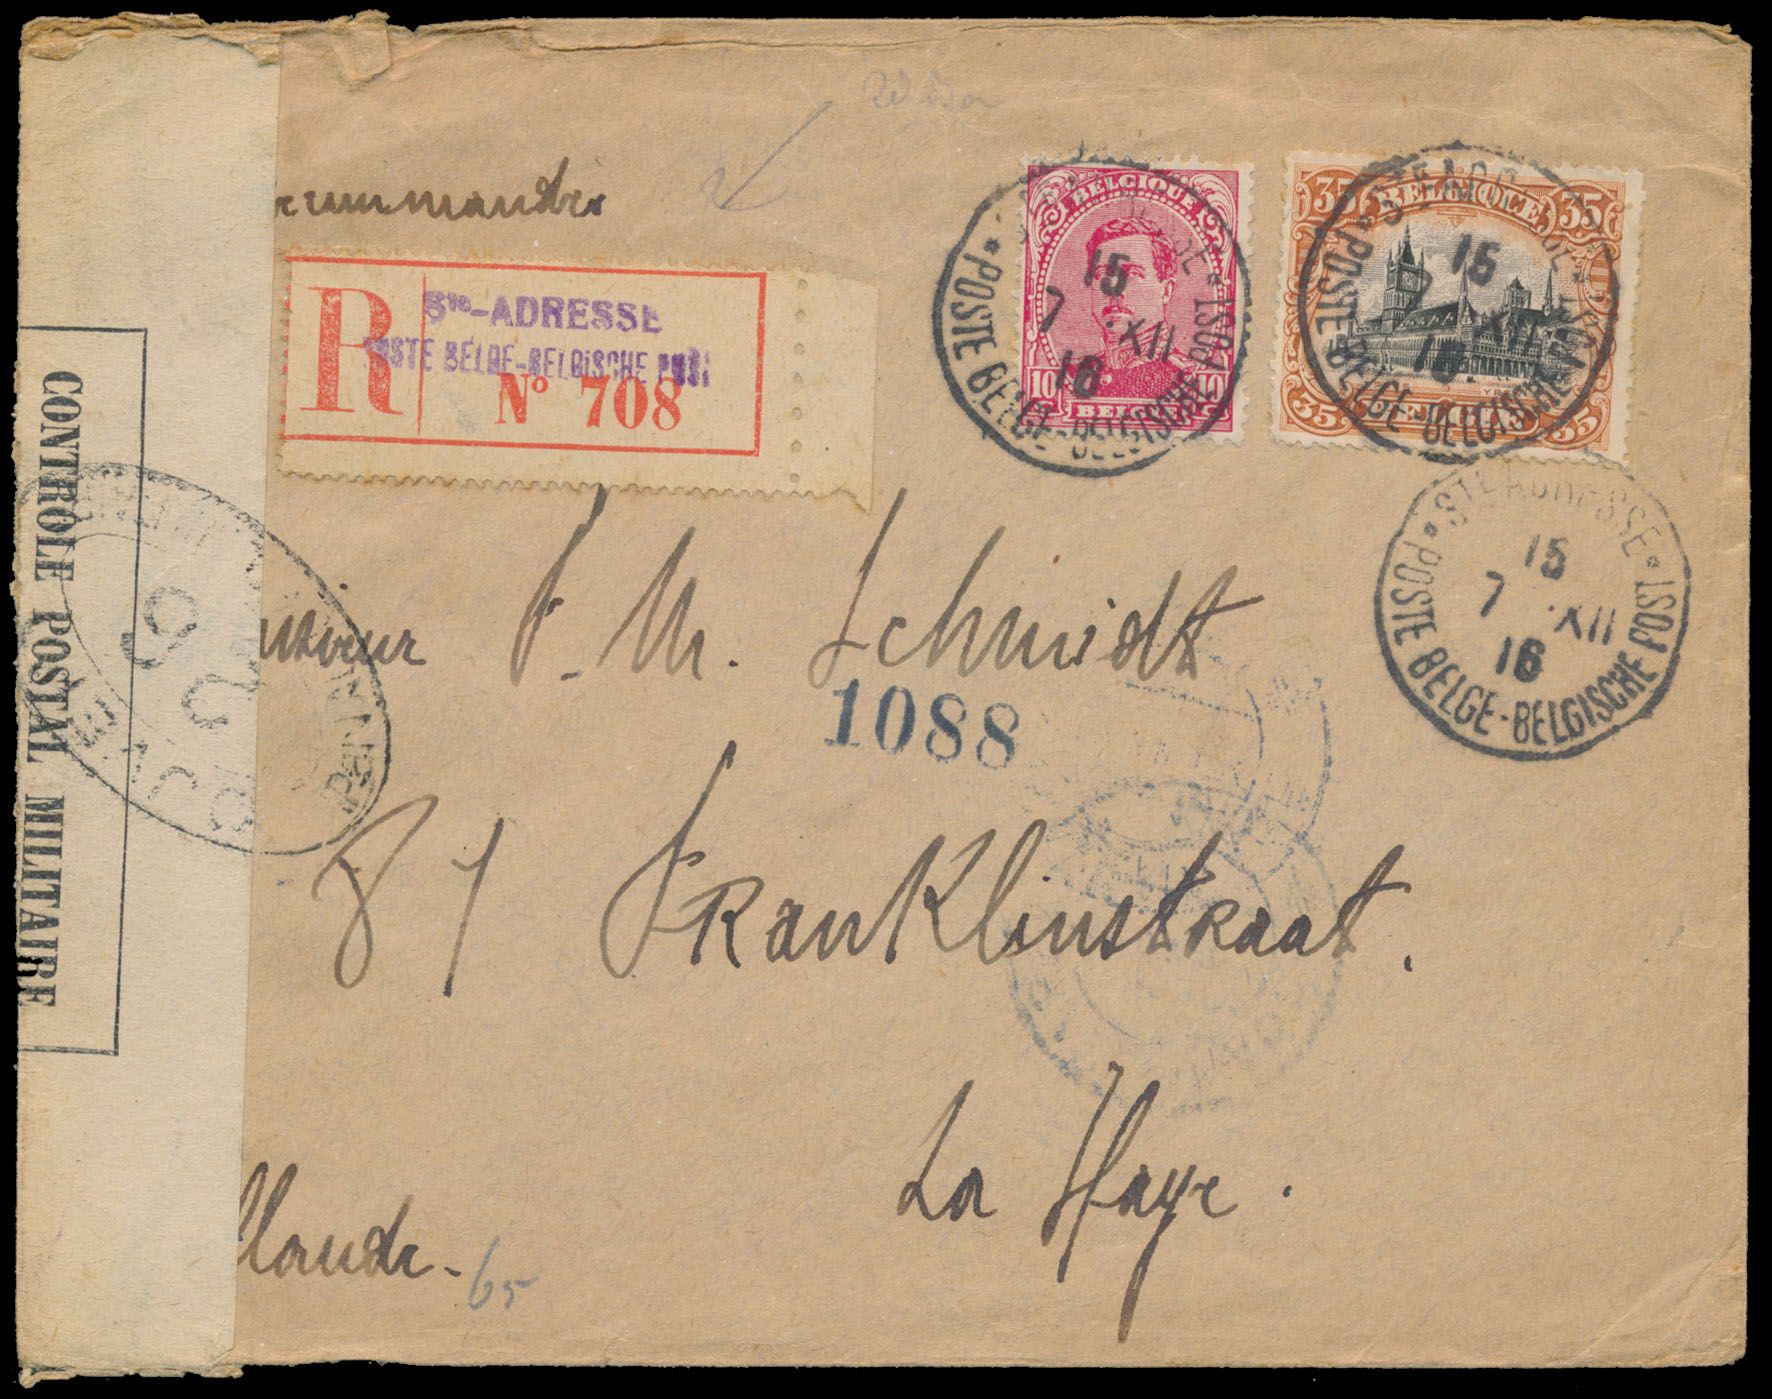 R
Ste-ADRESSE
POSTE BELGE-BELGISCHE POST
Nº 708
BELGIQUE
10 10
BELGIË
STE ADRESSE
15
7 XII
16
POSTE BELGE-BELGISCHE POST
35 BELGIQUE 35
35 BELGIË 35
STE ADRESSE
15
7 XII
16
POSTE BELGE-BELGISCHE POST
STE ADRESSE
15
7 XII
16
POSTE BELGE-BELGISCHE POST
CONTRÔLE POSTAL MILITAIRE
M. Schmidt
1088
81 Franklinstraat.
La Haye.
llande-
65